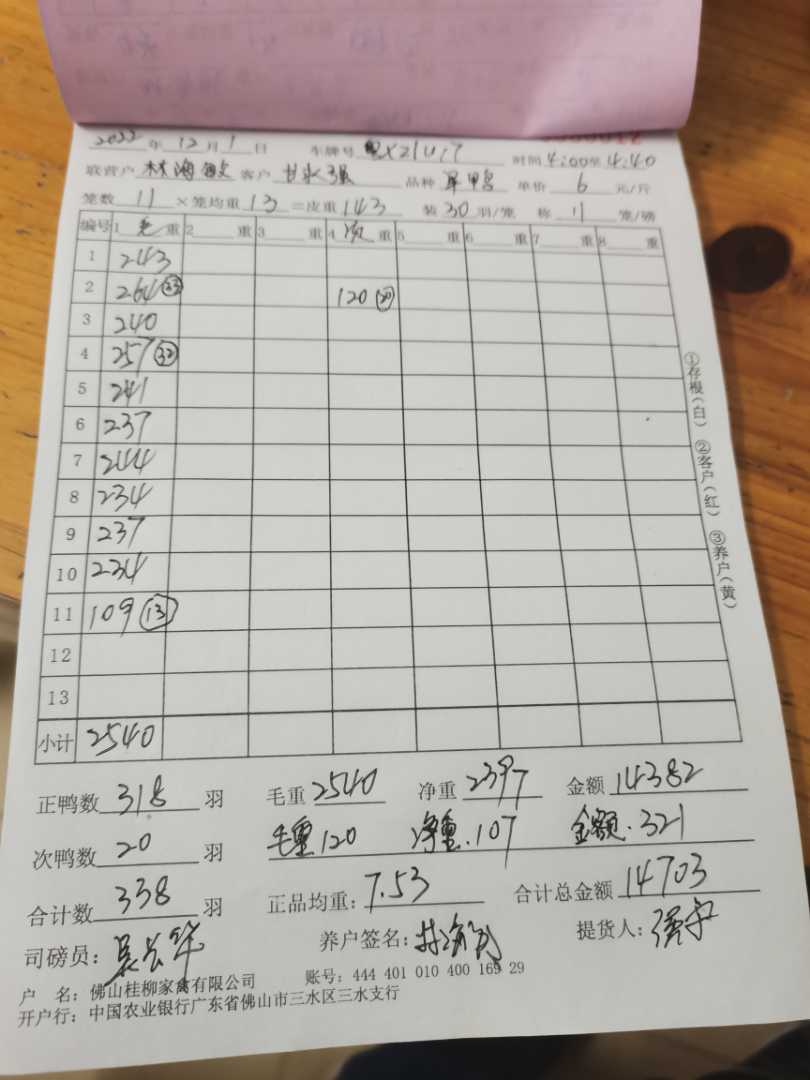 2022 年 12 月 1 日 车牌号 时间 4:00至 4:40
联营户 林海敏 客户 甘永强 品种 单价 6 元/斤
笼数 11 ×笼均重 13 =皮重 143 装 30 羽/笼 称 11 笼/磅
编号 1 毛 重 2 重 3 重 4 次 重 5 重 6 重 7 重 8 重
1 243
2 264 120 (20)
3 240
4 257 (32)
5 241
6 237
7 244
8 234
9 237
10 234
11 109 (13)
12
13
小计 2540
正鸭数 318 羽 毛重 2540 净重 2397 金额 14382
次鸭数 20 羽 毛重 120 净重.107 金额.321
合计数 338 羽 正品均重: 7.53 合计总金额 14703
司磅员: 养户签名: 提货人:
户 名: 佛山桂柳家禽有限公司 账号: 444 401 010 400 169 29
开户行: 中国农业银行广东省佛山市三水区三水支行
①存根(白) ②客户(红) ③养户(黄)